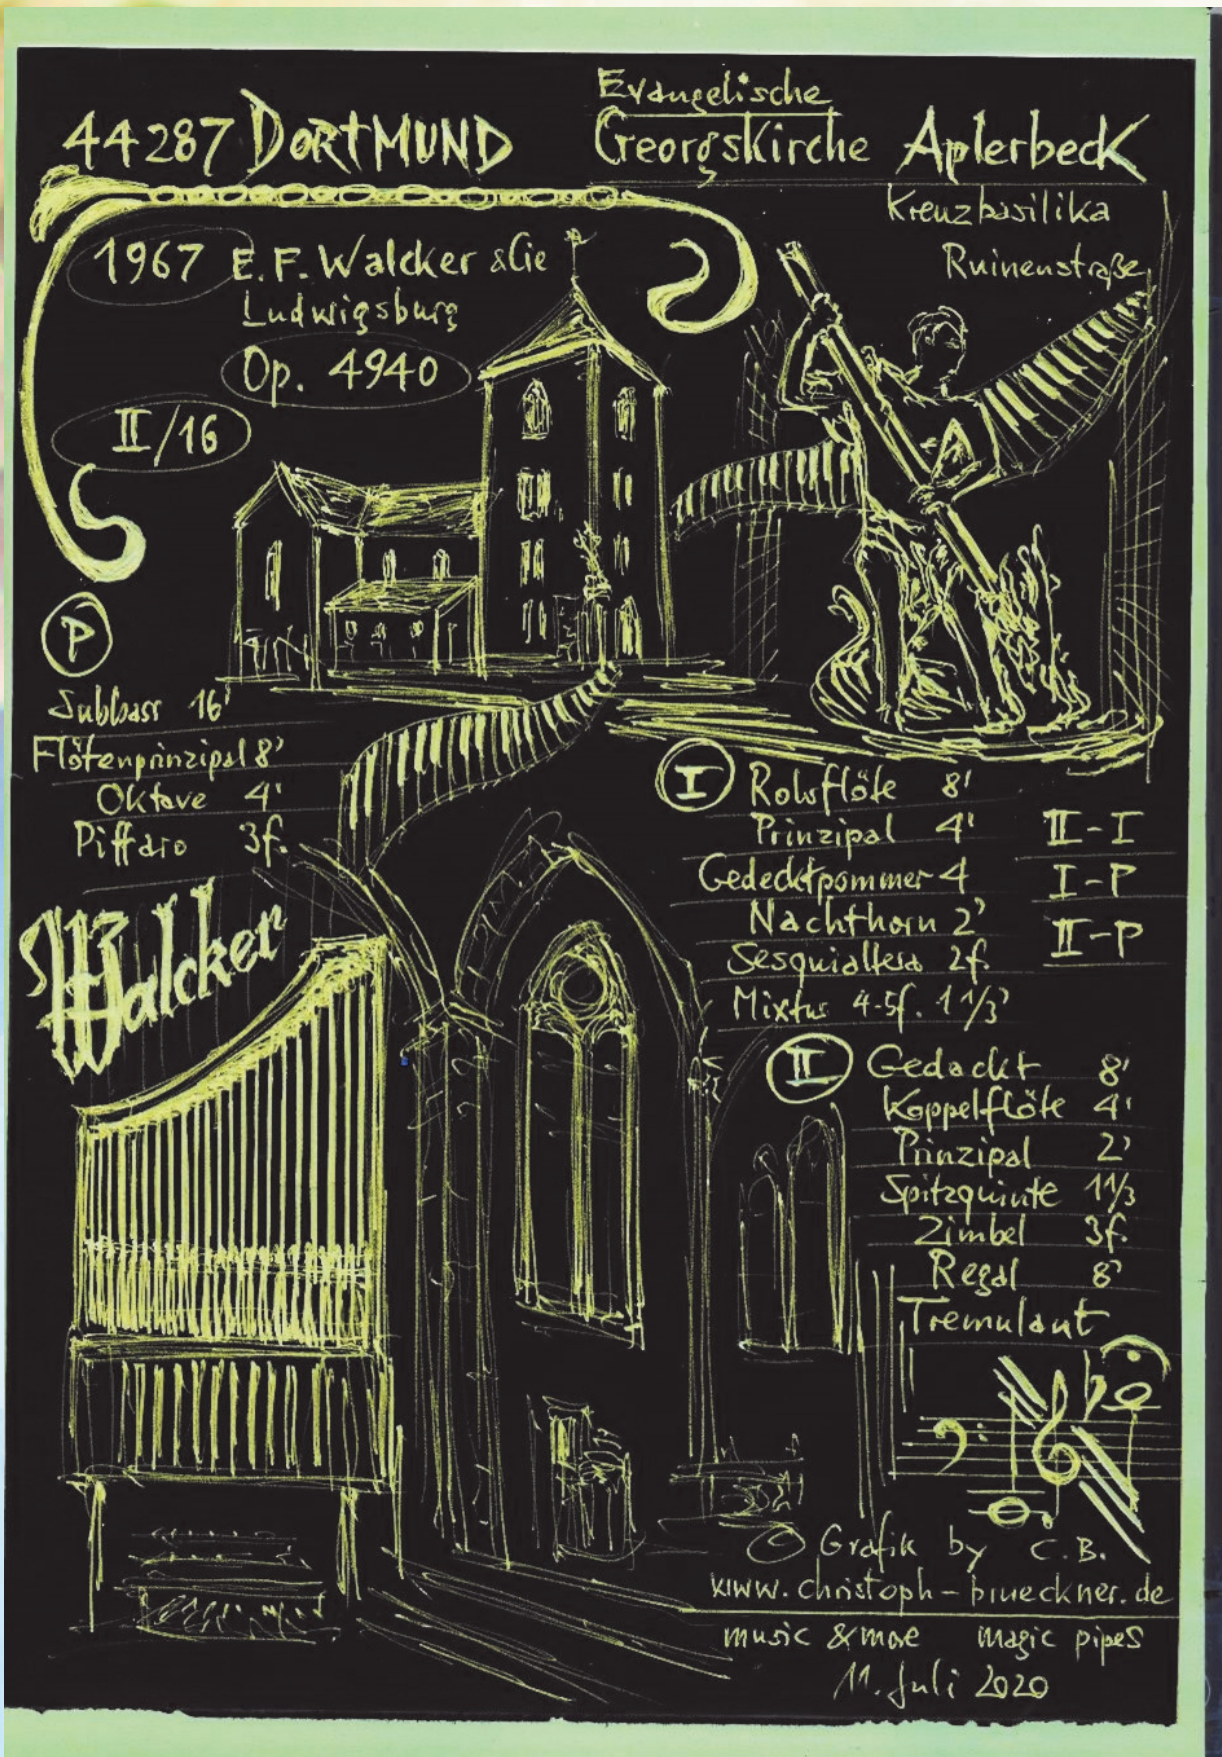 44287 DORTMUND
Evangelische
Georgskirche Aplerbeck
Kreuzbasilika
Ruinenstraße
1967 E. F. Walcker & Cie
Ludwigsburg
Op. 4940
II/16
P
Subbass 16'
Flötenprinzipal 8'
Oktave 4'
Piffaro 3f.
Walcker
I Rohrflöte 8'
Prinzipal 4'
Gedecktpommer 4
Nachthorn 2'
Sesquialtera 2f.
Mixtur 4-5f. 1 1/3'
II-I
I-P
II-P
II Gedackt 8'
Koppelflöte 4'
Prinzipal 2'
Spitzquinte 1 1/3
Zimbel 3f.
Regal 8'
Tremulant
Grafik by C.B.
www.christoph-brueckner.de
music & more magic pipes
11. Juli 2020